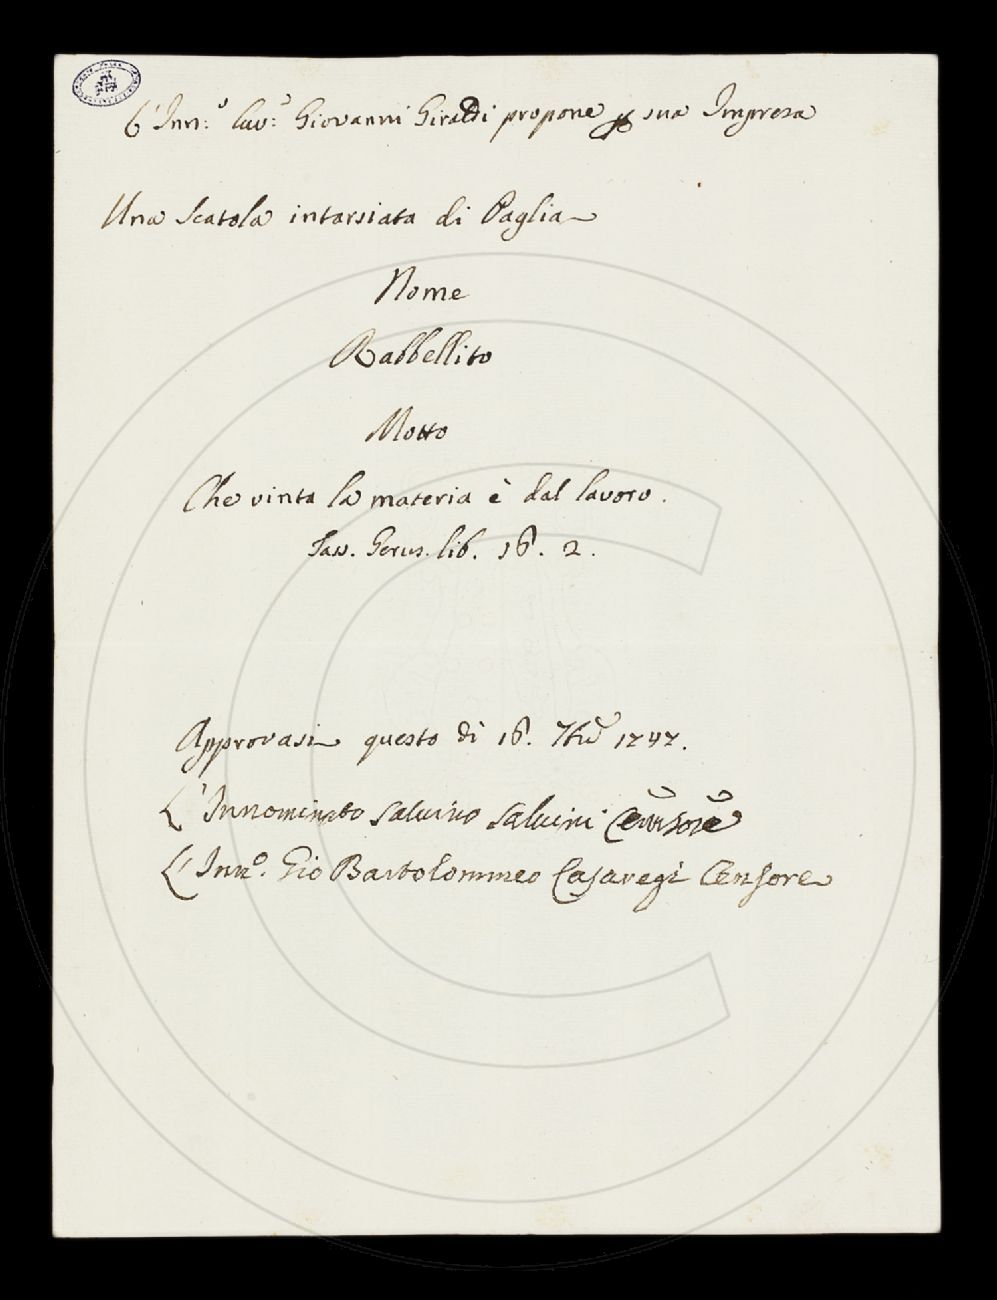 L'Inn:º Cav:º Giovanni Giraldi propone p sua Impresa
Una Scatola intarsiata di Paglia
Nome
Rabbellito
Motto
Che vinta la materia è dal lavoro.
Tass. Gerus. lib. 16. 2.
Approvasi questo dì 16. 7bre 1747.
L'Innominato Salvino Salvini Censore
L'Innº. Gio Bartolommeo Casaregi Censore